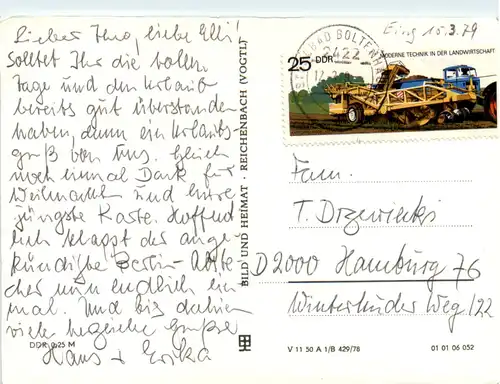 Lieber Ihno, liebe Elli!
Solltet Ihr die tollen
Tage und den Urlaub
bereits gut überstanden
haben, dann ein Urlaubs-
gruß von uns. Gleich
noch einmal Dank für
Weihnacht und Eure
jüngste Karte. Hoffent
lich klappt der ange-
kündigte Berlin-
cher nun endlich ein
mal. Und bis dahin
viele herzliche Grüße
Hans + Erika
DDR 0,25 M
BILD UND HEIMAT · REICHENBACH (VOGTL)
Eing 15.3.79
BAD DOLTENH
2422
25 DDR
MODERNE TECHNIK IN DER LANDWIRTSCHAFT
Fam.
T. Drzewiecki
D2000 Hamburg 76
Winterhuder Weg 122
V 11 50 A 1/B 429/78
01 01 06 052